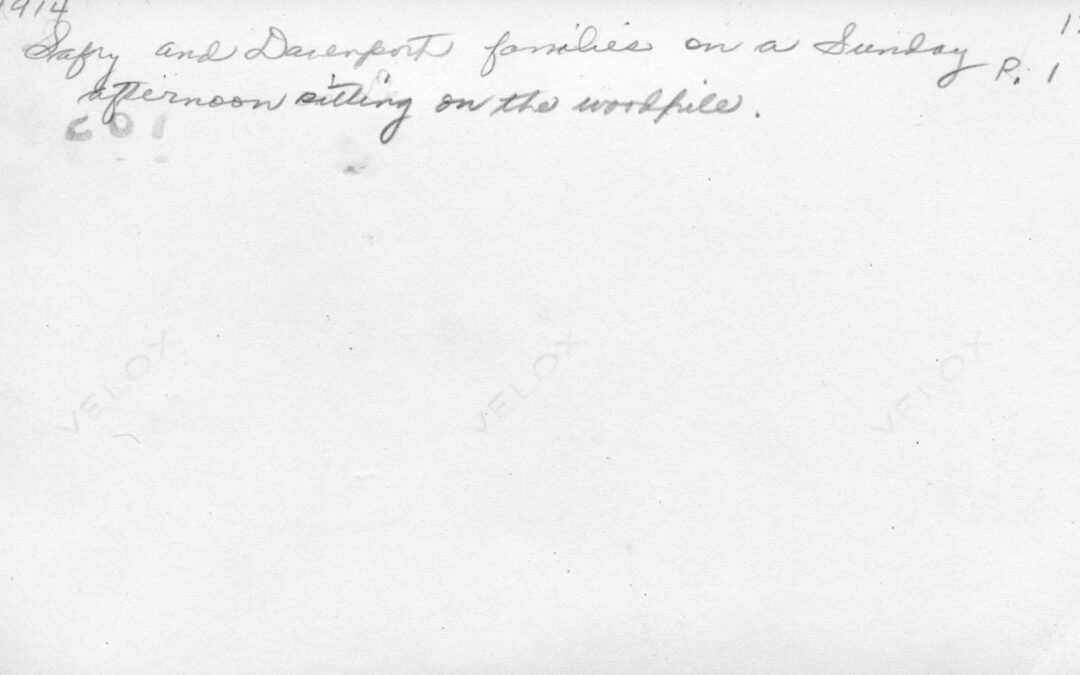 1914
Safry and Davenport families on a Sunday
P. 1
afternoon sitting on the woodpile.
601
VELOX VELOX VELOX